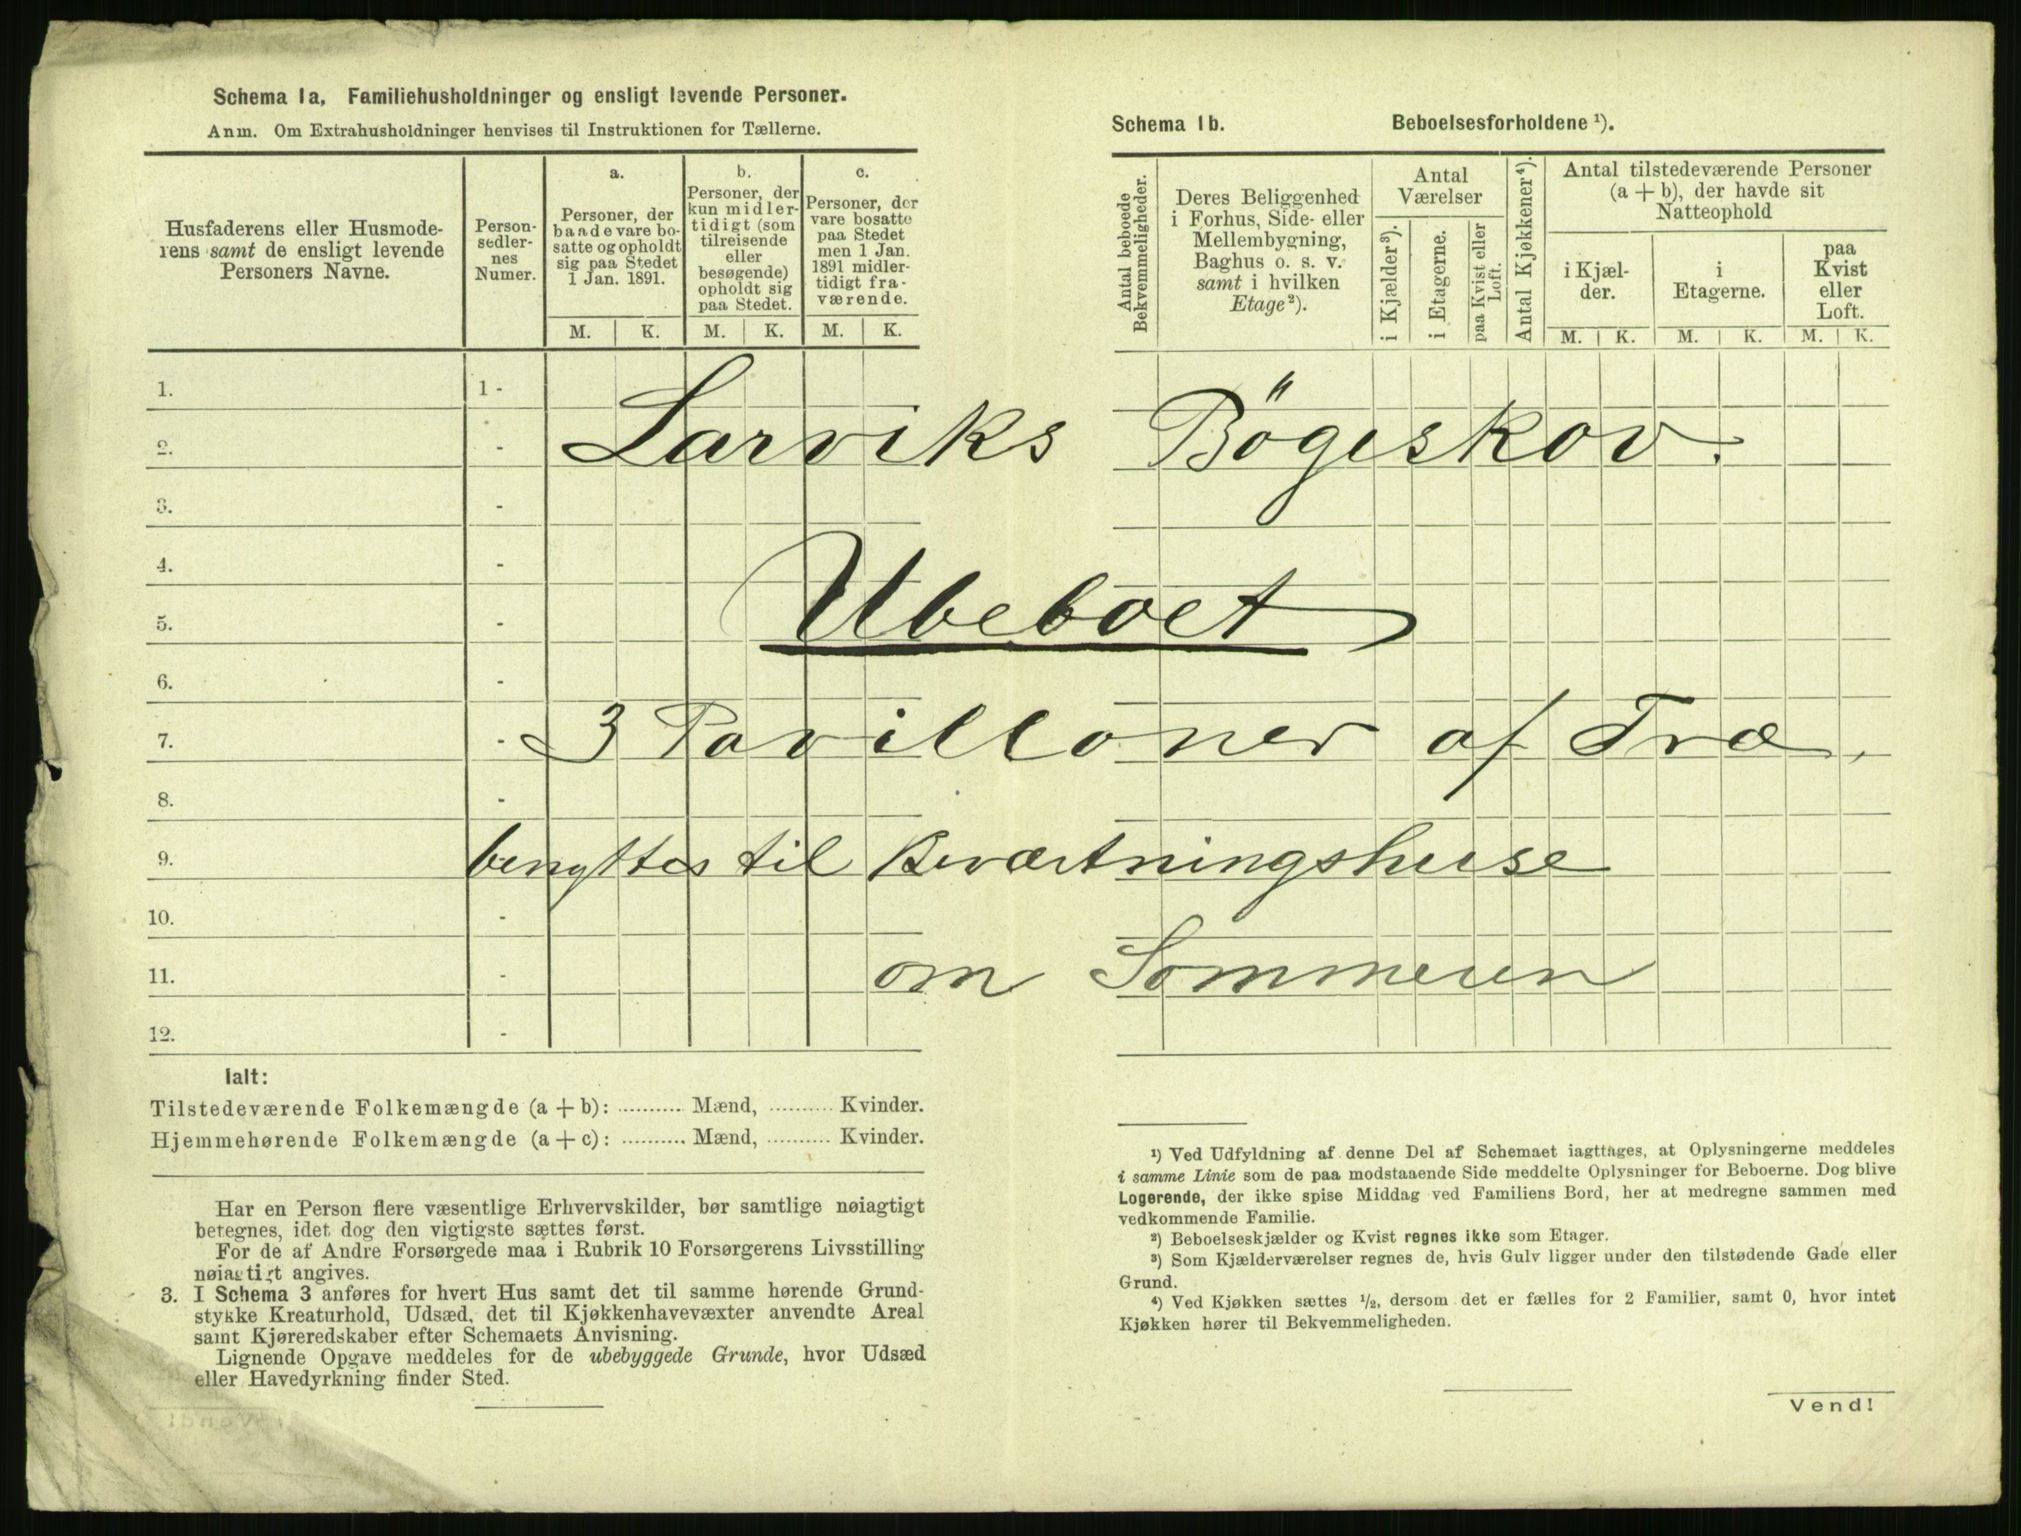 Schema 1a, Familiehusholdninger og ensligt levende Personer.
Anm. Om Extrahusholdninger henvises til Instruktionen for Tællerne.
Husfaderens eller Husmode-
rens samt de ensligt levende
Personers Navne.
Person-
sedler-
nes
Numer.
a.
Personer, der
baade vare bo-
satte og opholdt
sig paa Stedet
1 Jan. 1891.
b.
Personer, der
kun midler-
tidigt (som
tilreisende
eller
besøgende)
opholdt sig
paa Stedet.
c.
Personer, der
vare bosatte
paa Stedet
men 1 Jan.
1891 midler-
tidigt fra-
værende.
M. K. M. K. M. K.
Schema 1b. Beboelsesforholdene ¹).
Antal beboede
Bekvemmeligheder.
Deres Beliggenhed
i Forhus, Side- eller
Mellembygning,
Baghus o. s. v.
samt i hvilken
Etage²).
Antal
Værelser
i Kjælder³).
i Etagerne.
paa Kvist eller
Loft.
Antal Kjøkkener⁴).
Antal tilstedeværende Personer
(a + b), der havde sit
Natteophold
i Kjæl-
der.
i
Etagerne.
paa
Kvist
eller
Loft.
M. K. M. K. M. K.
1. 1 -
2. - Larviks Bögeskov.
3. -
4. -
5. - Ubeboet
6. -
7. - 3 Pavilloner af Træ,
8. -
9. benyttes til Beværtningshuse
10. -
11. - om Sommeren
12. -
Ialt:
Tilstedeværende Folkemængde (a + b): ........... Mænd, ........... Kvinder.
Hjemmehørende Folkemængde (a + c): ........... Mænd, ........... Kvinder.
Har en Person flere væsentlige Erhvervskilder, bør samtlige nøiagtigt
betegnes, idet dog den vigtigste sættes først.
For de af Andre Forsørgede maa i Rubrik 10 Forsørgerens Livsstilling
nøiagtigt angives.
3. I Schema 3 anføres for hvert Hus samt det til samme hørende Grund-
stykke Kreaturhold, Udsæd, det til Kjøkkenhavevæxter anvendte Areal
samt Kjøreredskaber efter Schemaets Anvisning.
Lignende Opgave meddeles for de ubebyggede Grunde, hvor Udsæd
eller Havedyrkning finder Sted.
¹) Ved Udfyldning af denne Del af Schemaet iagttages, at Oplysningerne meddeles
i samme Linie som de paa modstaaende Side meddelte Oplysninger for Beboerne. Dog blive
Logerende, der ikke spise Middag ved Familiens Bord, her at medregne sammen med
vedkommende Familie.
²) Beboelseskjælder og Kvist regnes ikke som Etager.
³) Som Kjælderværelser regnes de, hvis Gulv ligger under den tilstødende Gade eller
Grund.
⁴) Ved Kjøkken sættes ½, dersom det er fælles for 2 Familier, samt 0, hvor intet
Kjøkken hører til Bekvemmeligheden.
Vend!